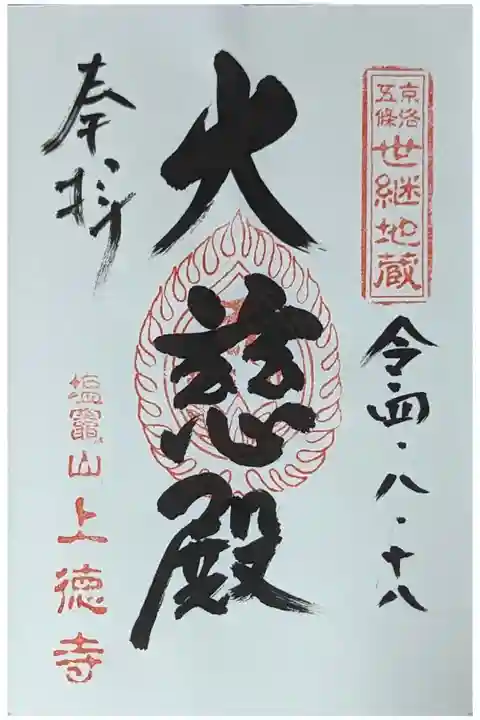 京洛
五條
世継地蔵
令四・八・十八
大慈殿
奉拝
塩竈山上徳寺